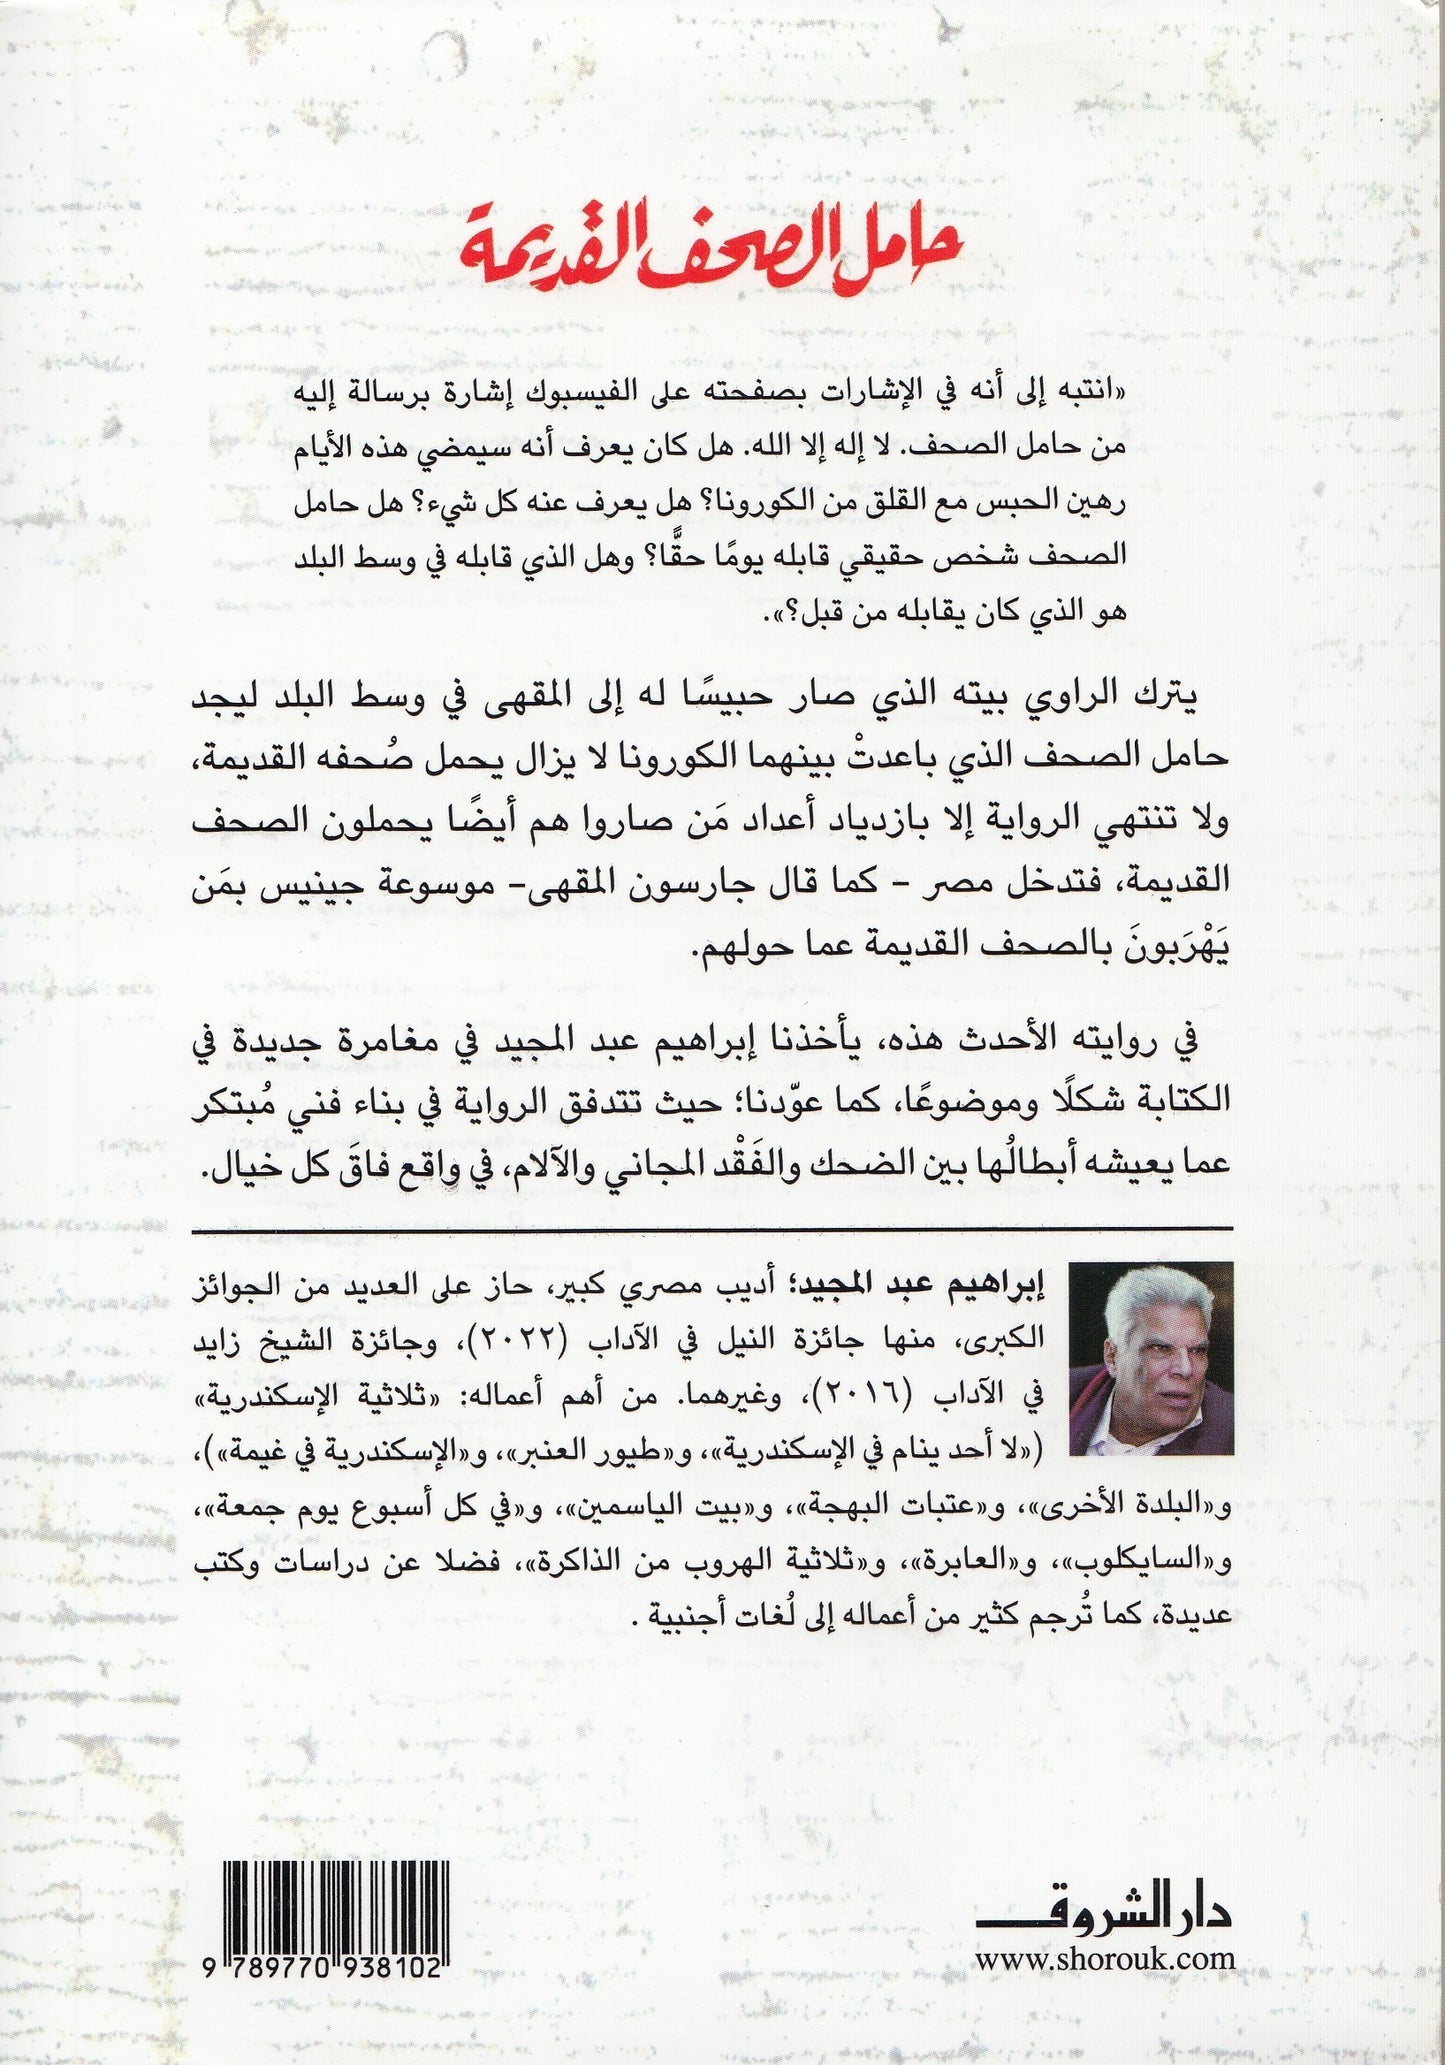 حامل الصحف القديمة
«انتبه إلى أنه في الإشارات بصفحته على الفيسبوك إشارة برسالة إليه
من حامل الصحف. لا إله إلا الله. هل كان يعرف أنه سيمضي هذه الأيام
رهين الحبس مع القلق من الكورونا؟ هل يعرف عنه كل شيء؟ هل حامل
الصحف شخص حقيقي قابله يومًا حقًّا؟ وهل الذي قابله في وسط البلد
هو الذي كان يقابله من قبل؟».
يترك الراوي بيته الذي صار حبيسًا له إلى المقهى في وسط البلد ليجد
حامل الصحف الذي باعدتْ بينهما الكورونا لا يزال يحمل صُحفه القديمة،
ولا تنتهي الرواية إلا بازدياد أعداد مَن صاروا هم أيضًا يحملون الصحف
القديمة، فتدخل مصر – كما قال جارسون المقهى– موسوعة جينيس بمَن
يَهْرَبونَ بالصحف القديمة عما حولهم.
في روايته الأحدث هذه، يأخذنا إبراهيم عبد المجيد في مغامرة جديدة في
الكتابة شكلًا وموضوعًا، كما عوّدنا؛ حيث تتدفق الرواية في بناء فني مُبتكر
عما يعيشه أبطالُها بين الضحك والفَقْد المجاني والآلام، في واقع فاقَ كل خيال.
إبراهيم عبد المجيد؛ أديب مصري كبير، حاز على العديد من الجوائز
الكبرى، منها جائزة النيل في الآداب (٢٠٢٢)، وجائزة الشيخ زايد
في الآداب (٢٠١٦)، وغيرهما. من أهم أعماله: «ثلاثية الإسكندرية»
(«لا أحد ينام في الإسكندرية»، و«طيور العنبر»، و«الإسكندرية في غيمة»)،
و«البلدة الأخرى»، و«عتبات البهجة»، و«بيت الياسمين»، و«في كل أسبوع يوم جمعة»،
و«السايكلوب»، و«العابرة»، و«ثلاثية الهروب من الذاكرة»، فضلا عن دراسات وكتب
عديدة، كما تُرجم كثير من أعماله إلى لُغات أجنبية .
دار الشروق
www.shorouk.com
9 789770 938102